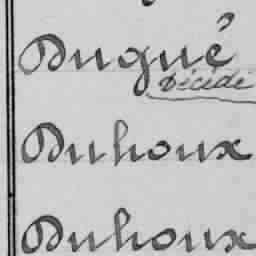 Dugué
Décédé
Duhoux
Duhoux